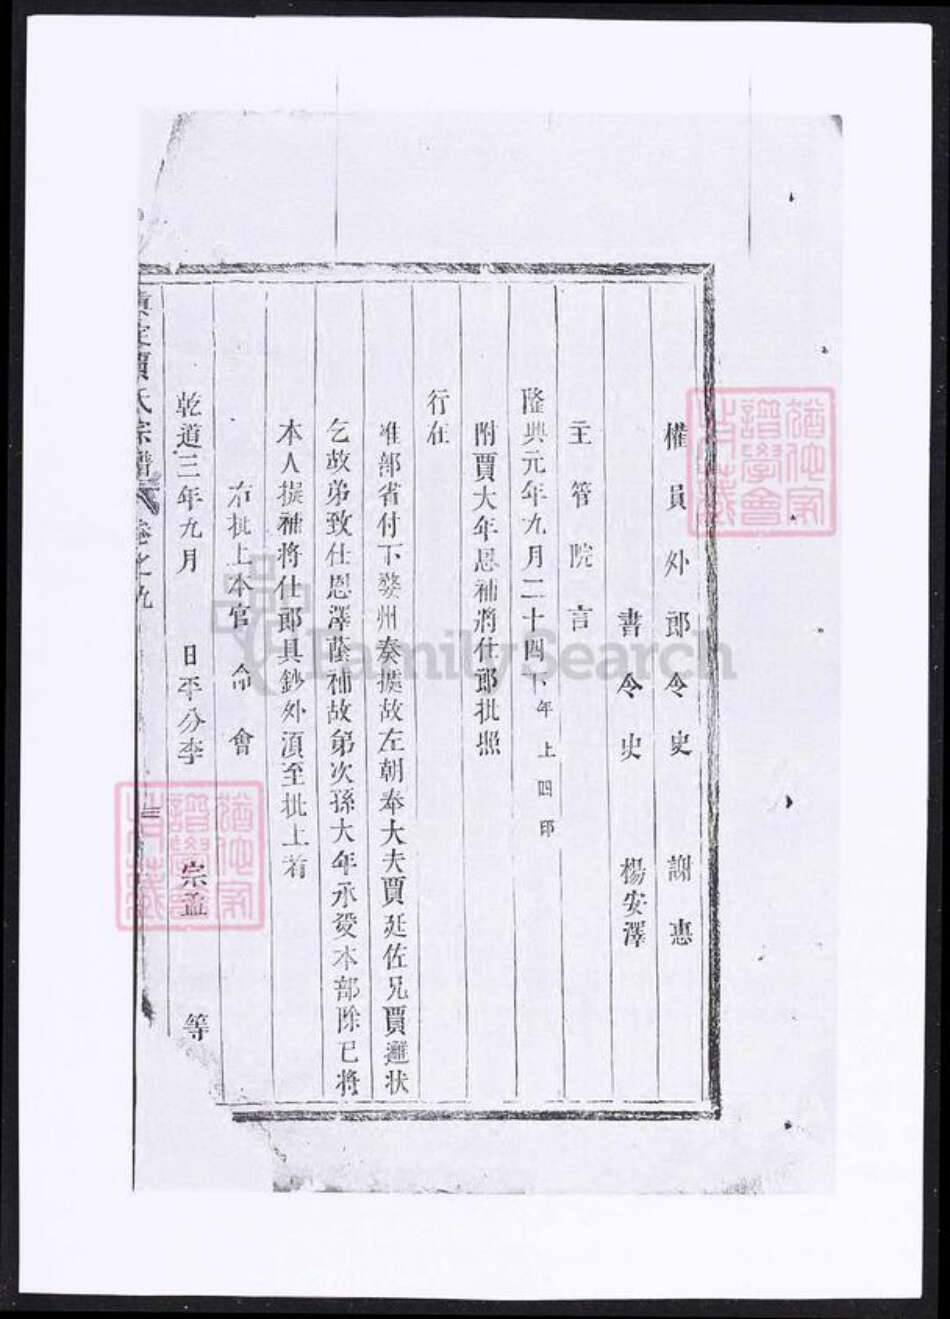 權員外郎令史 謝惠
書令史 楊安澤
主管院言
隆興元年九月二十四下年上四印
附賈大年恩補將仕郎批照
行在
准都省付下婺州奏據故左朝奉大夫賈廷佐兄賈遜狀
乞故弟致仕恩澤蔭補故弟次孫大年承受本部除已將
本人擬補將仕郎具鈔外須至批上者
右批上本官命會
乾道三年九月 日平分李 宗孟 等
真定賈氏宗譜 卷之九
FamilySearch